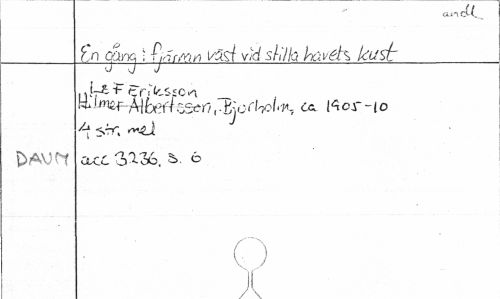 andl.
En gång i fjärran väst vid stilla havets kust
Leif Eriksson
Hilmer Albertsson, Bjurholm, ca 1905-10
4 str. mel
DAUM acc 3236, s. 6